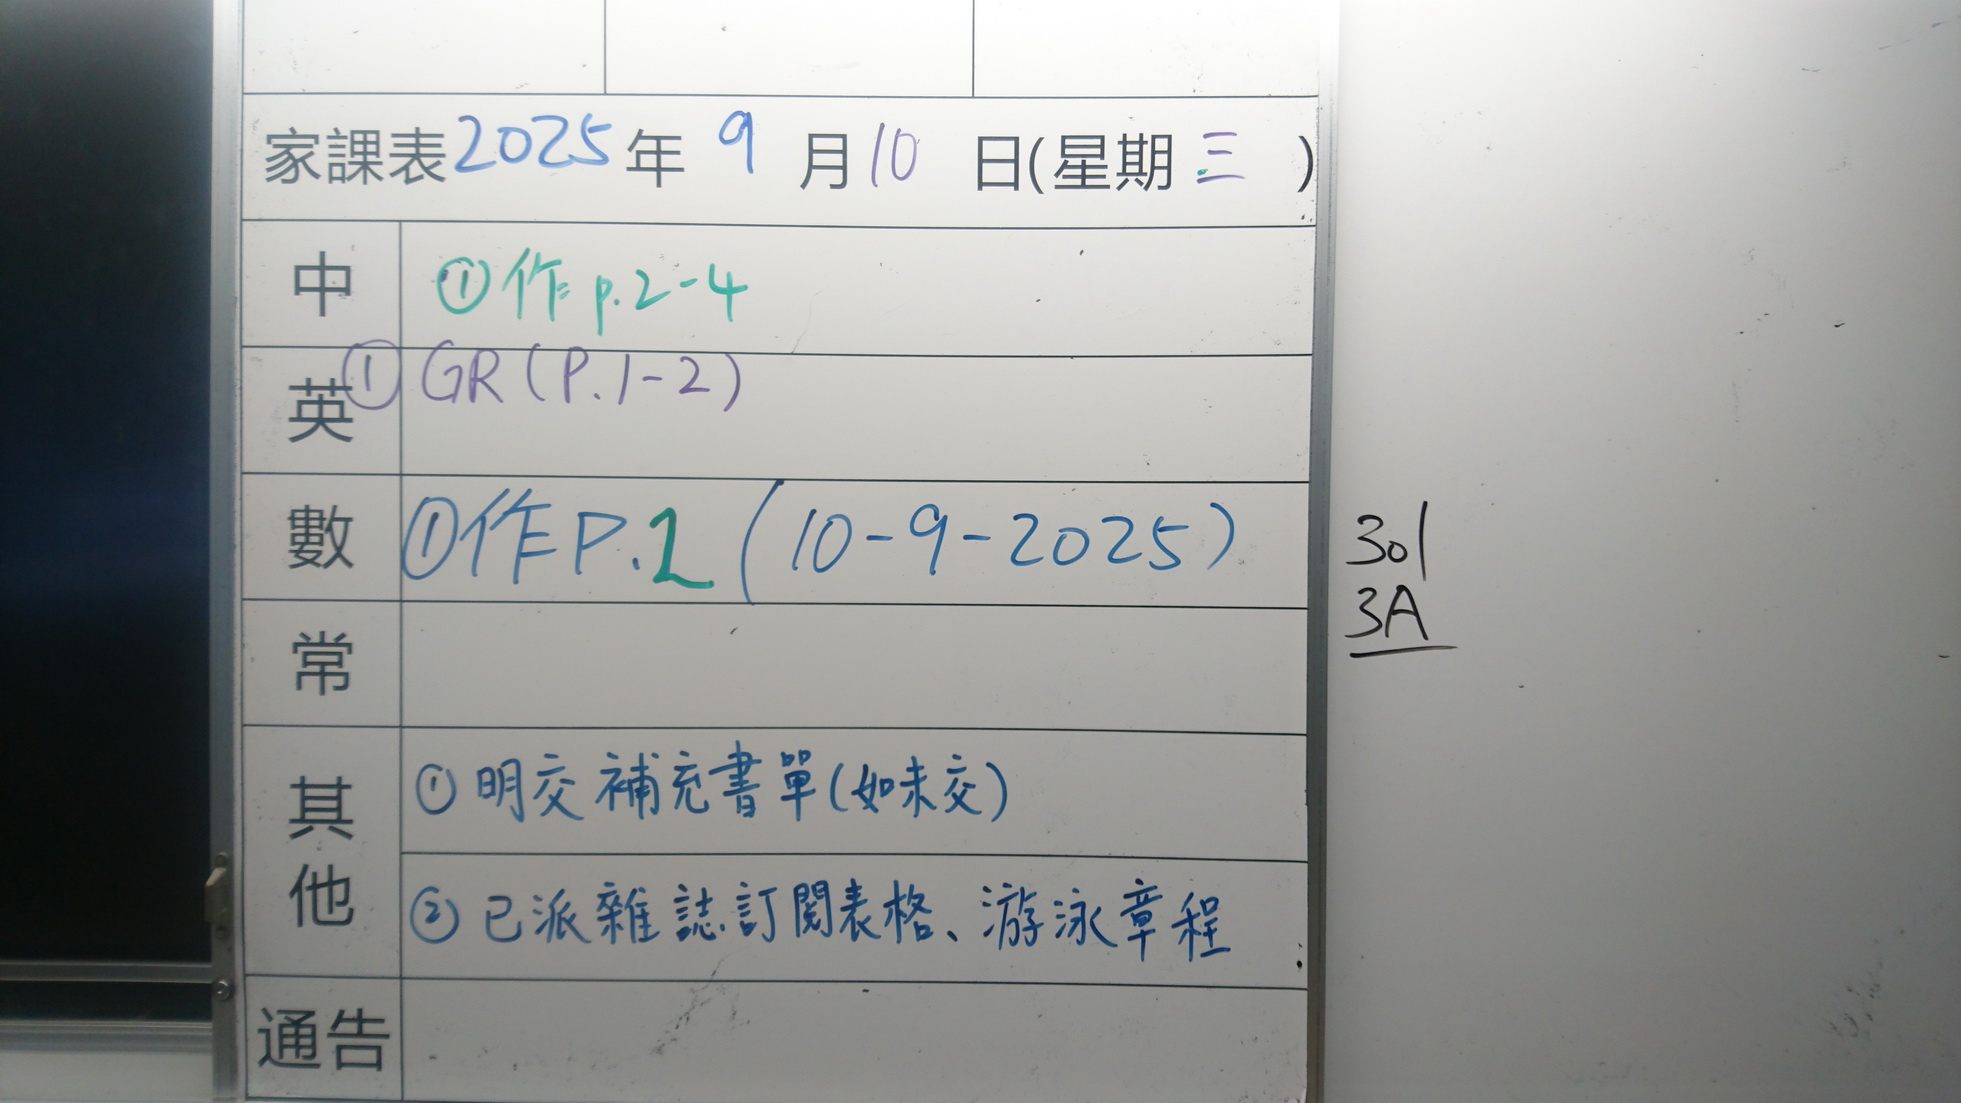 家課表2025年 9 月10 日(星期 三 )
中 ①作 p.2-4
英 ① GR (P.1-2)
數 ①作 P.1 (10-9-2025)
常
其他 ① 明交補充書單(如未交)
② 已派雜誌訂閱表格、游泳章程
通告
301
3A